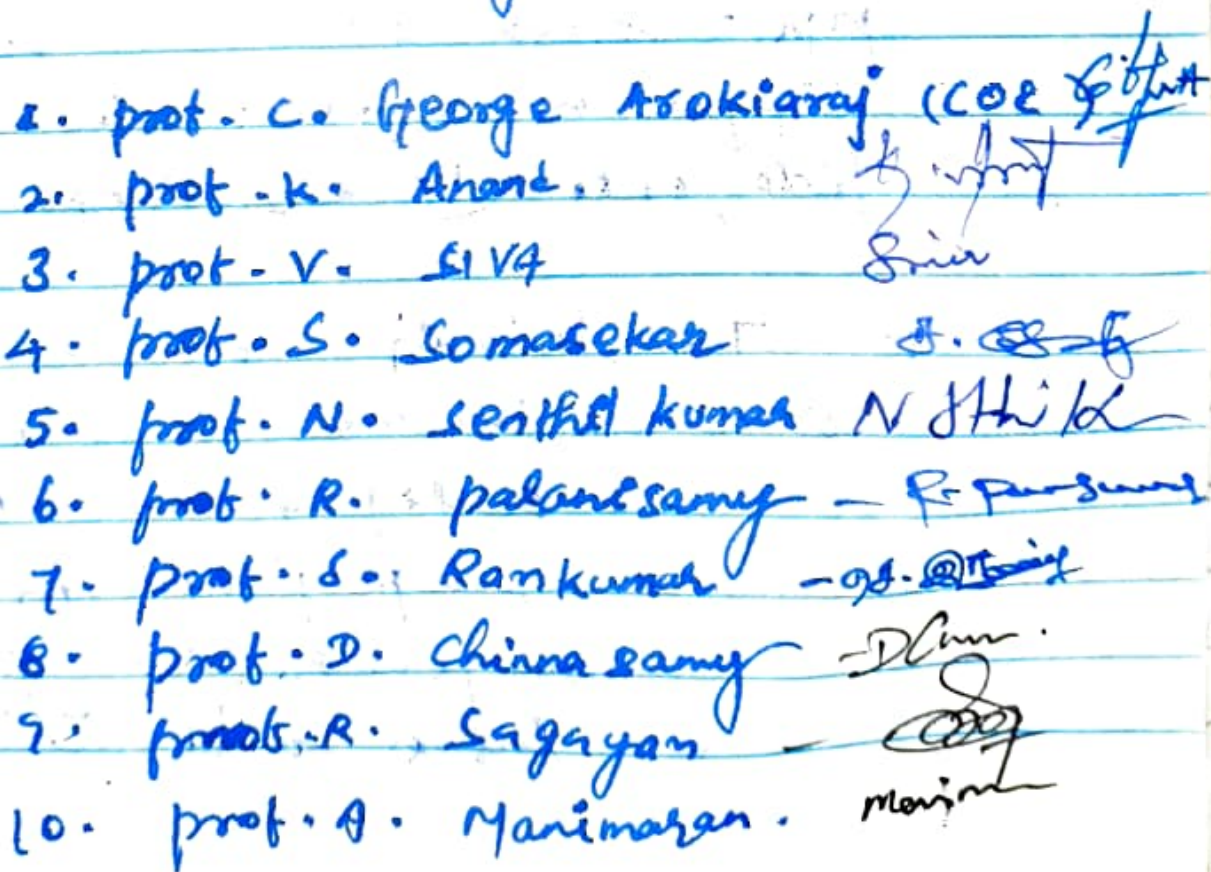 1. prof. C. George Arokiaraj (COE)
2. prof. K. Anand.
3. prof. V. SIVA
4. prof. S. Somasekar
5. prof. N. Senthil kumar
6. prof. R. palanisamy -
7. prof. S. Ramkumar -
8. prof. D. Chinnasamy -
9. prof. R. Sagayan -
10. prof. A. Manimaran.